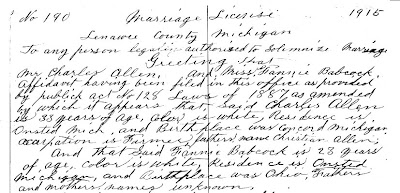 No 190 Marriage License 1915
Lenawee County Michigan
To any person legally authorized to Solemnize Marriage
Greeting that
Mr Charles Allen, And Miss Fannie Babcock,
Affidavit having been filed in this office as provided
by public act No 128 Laws of 1887 as amended
by which it appears that, Said Charles Allen
is 33 years of Age, Color is white, Residence is
Onsted Mich, and Birthplace was Concord Michigan
occupation is Farmer, fathers name Christian Allen,
And That Said Fannie Babcock is 28 years
of age, Color is White, Residence is Onsted
Michigan, and Birthplace was Ohio, Fathers
and mothers names unknown,